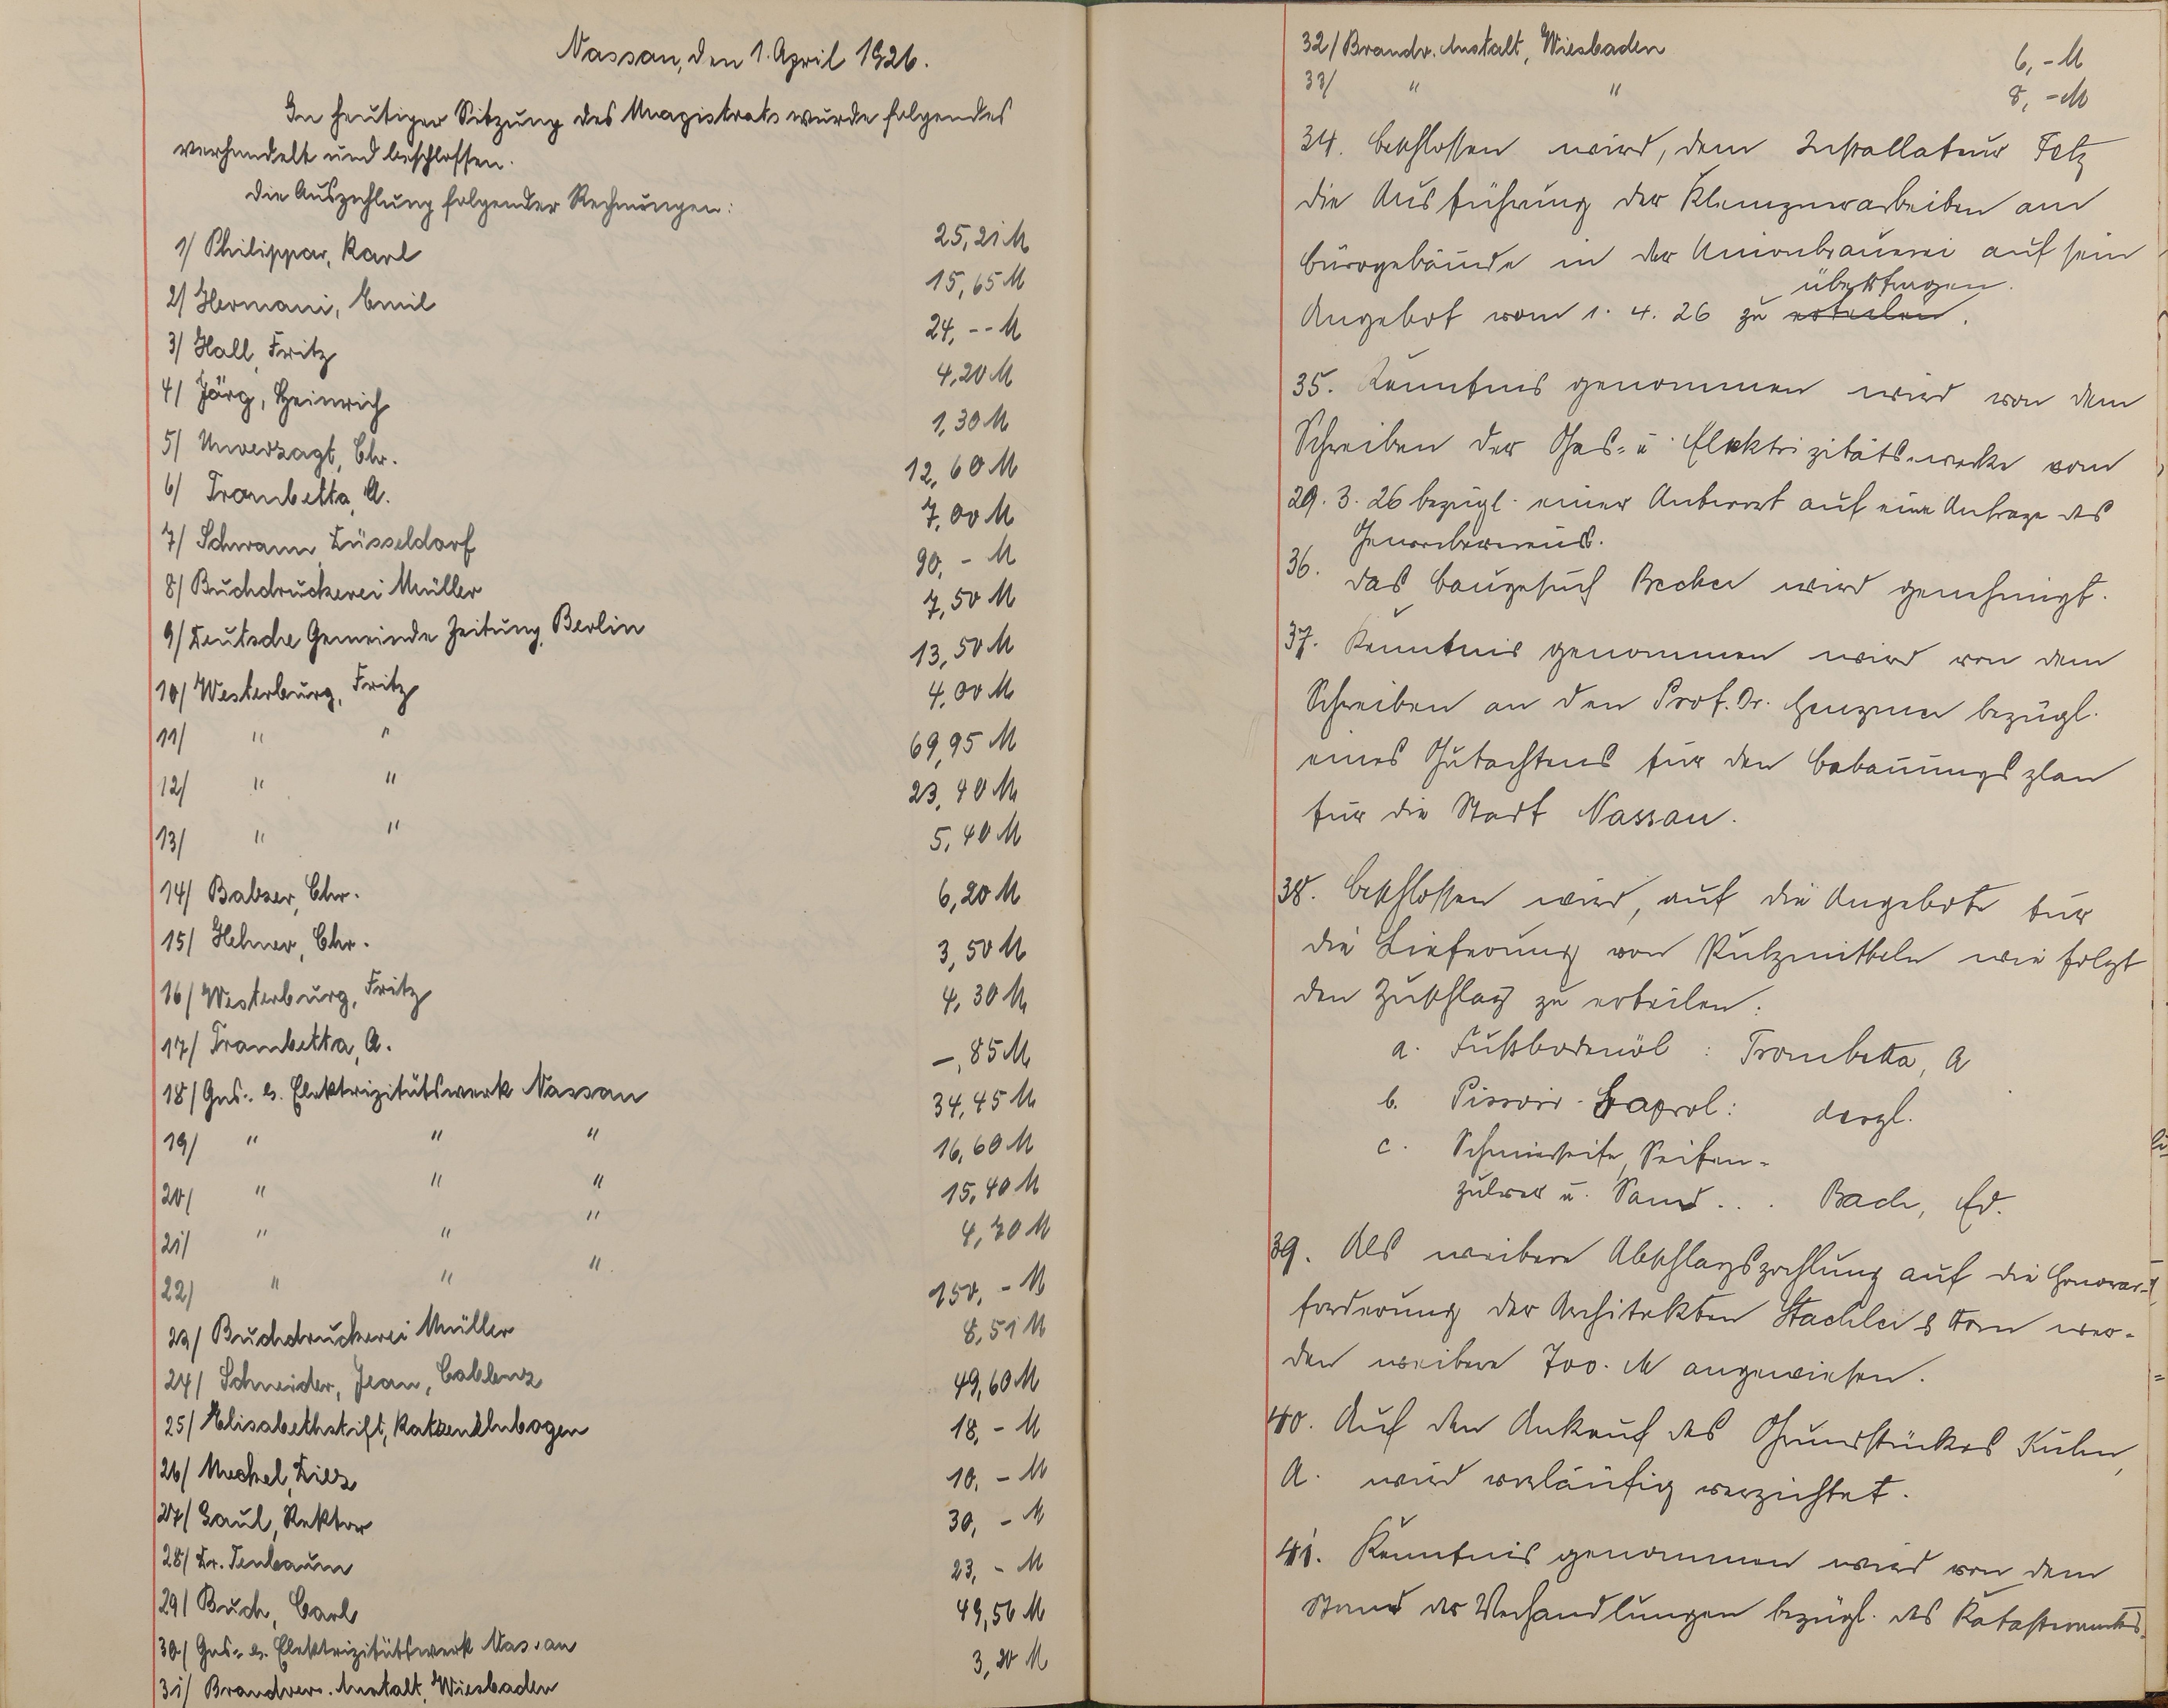 Nassau, den 1. April 1926.
In heutiger Sitzung des Magistrats wurde folgendes
verhandelt und beschlossen.
Die Auszahlung folgender Rechnungen:
1/ Philippar, Karl 25,21 M
2/ Hermani, Emil 15,65 M
3/ Hall, Fritz 24,-- M
4/ Jörg, Heinrich 4,20 M
5/ Unverzagt, Chr. 1,30 M
6/ Trombetta, A. 12,60 M
7/ Schwann, Düsseldorf 7,00 M
8/ Buchdruckerei Müller 90,- M
9/ Deutsche Gemeinde Zeitung, Berlin 7,50 M
10/ Westerburg, Fritz 13,50 M
11/ " " 4,00 M
12/ " " 69,95 M
13/ " " 23,40 M
14/ Balzer, Chr. 5,40 M
15/ Hehner, Chr. 6,20 M
16/ Westerburg, Fritz 3,50 M
17/ Trombetta, A. 4,30 M
18/ Gas- u. Elektrizitätswerk Nassau -,85 M
19/ " " " 34,45 M
20/ " " " 16,60 M
21/ " " " 15,40 M
22/ " " " 4,70 M
23/ Buchdruckerei Müller 150,- M
24/ Schneider, Jean, Coblenz 8,51 M
25/ Elisabethstift, Katzenelnbogen 49,60 M
26/ Meckel, Diez 18,- M
27/ Gaul, Rektor 10,- M
28/ Dr. Tenbaum 30,- M
29/ Buch, Carl 23,- M
30/ Gas- u. Elektrizitätswerk Nassau 49,56 M
31/ Brandvers. Anstalt, Wiesbaden 3,20 M
32/ Brandv. Anstalt, Wiesbaden 6,- M
33/ " " 8,- M
34. Beschlossen wird, dem Installateur Fetz
die Ausführung der Klempnerarbeiten am
Bürogebäude in der Unionbrauerei auf sein
übertragen.
Angebot vom 1. 4. 26 zu erteilen.
35. Kenntnis genommen wird von dem
Schreiben der Gas- u. Elektrizitätswerke vom
29. 3. 26 bezügl. einer Antwort auf eine Anfrage des
Gewerbevereins.
36. Das Baugesuch Becker wird genehmigt.
37. Kenntnis genommen wird von dem
Schreiben an den Prof. Dr. bezügl.
eines Gutachtens für den Bebauungsplan
für die Stadt Nassau.
38. Beschlossen wird, auf die Angebote für
die Lieferung von Putzmitteln wie folgt
den Zuschlag zu erteilen:
a. Fußbodenöl: Trombetta, A
b. Pissoir-Saprol: dergl.
c. Schmierseife, Seifen-
pulver u. Sand... Bach, Ed.
39. Als weitere Abschlagszahlung auf die Honorar-
forderung der Architekten & wer-
den weitere 700. M angewiesen.
40. Auf den Ankauf des Grundstückes Kuhn,
A. wird vorläufig verzichtet.
41. Kenntnis genommen wird von dem
Stand der Verhandlungen bezügl. des Katasteramtes.